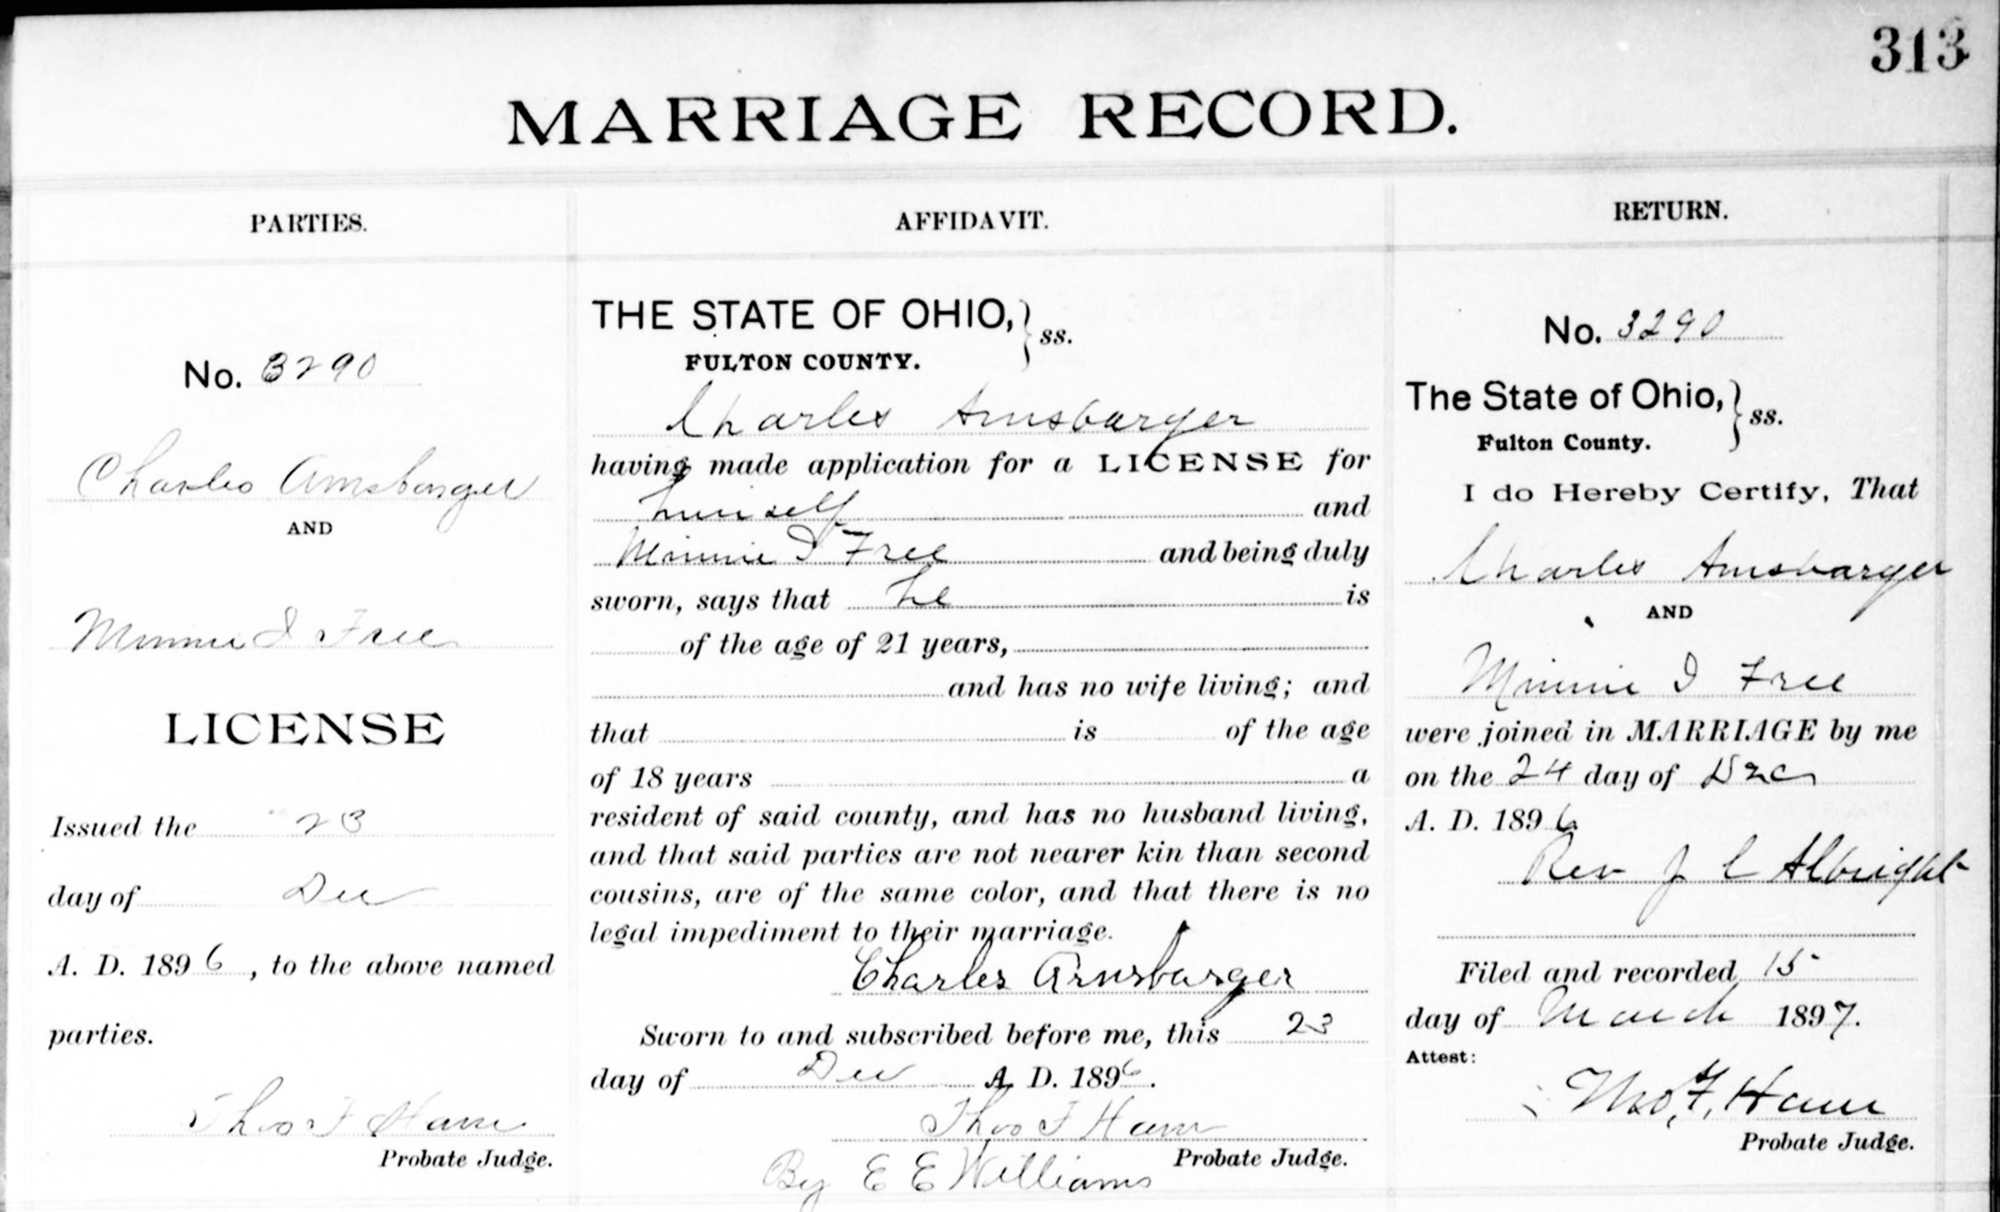 313
MARRIAGE RECORD.
PARTIES.
No. 3290
Charles Arnsbarger
AND
Minnie I Free
LICENSE
Issued the 23
day of Dec
A. D. 1896, to the above named
parties.
Thos F Ham
Probate Judge.
AFFIDAVIT.
THE STATE OF OHIO, } ss.
FULTON COUNTY.
Charles Arnsbarger
having made application for a LICENSE for
himself and
Minnie I Free and being duly
sworn, says that he is
of the age of 21 years,
and has no wife living; and
that is of the age
of 18 years a
resident of said county, and has no husband living,
and that said parties are not nearer kin than second
cousins, are of the same color, and that there is no
legal impediment to their marriage.
Charles Arnsbarger
Sworn to and subscribed before me, this 23
day of Dec A. D. 1896.
Thos F Ham
Probate Judge.
By E E Williams
RETURN.
No. 3290
The State of Ohio, } ss.
Fulton County.
I do Hereby Certify, That
Charles Arnsbarger
AND
Minnie I Free
were joined in MARRIAGE by me
on the 24 day of Dec
A. D. 1896
Rev J C Albright
Filed and recorded 15
day of March 1897.
Attest:
Thos. F. Ham
Probate Judge.